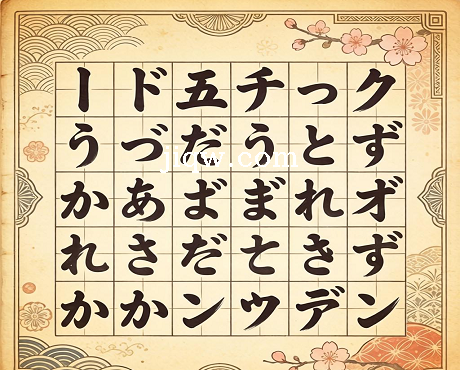 ー ド 五 チ っ ク
う づ だ う と ず
か あ ま れ オ
れ さ だ と き ず
か か ン ウ デ ン